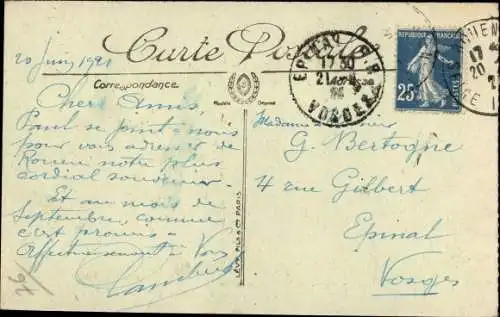 Carte Postale
20 Juin 1921
Correspondance
Chers Amis,
Paul se joint à nous
pour vous adresser de
Rouen notre plus
cordial souvenir.
Et au mois de
Septembre, comme
c'est promis
Affectueusement à Vous
Modèle Déposé
LÉVY FILS & Cie PARIS
EPINAL
17 30
VOSGES
REPUBLIQUE FRANÇAISE
25
ROUEN
17
20
Madame
G. Bertogne
4 rue Gilbert
Epinal
Vosges
76